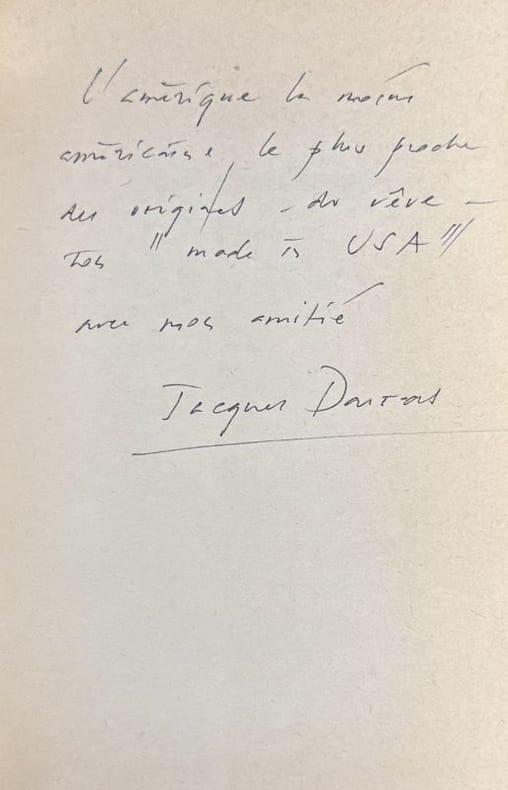 L'amérique la moins
américaine, le plus proche
des origines - du rêve -
ton "made in USA"
avec mon amitié
Jacques Darras